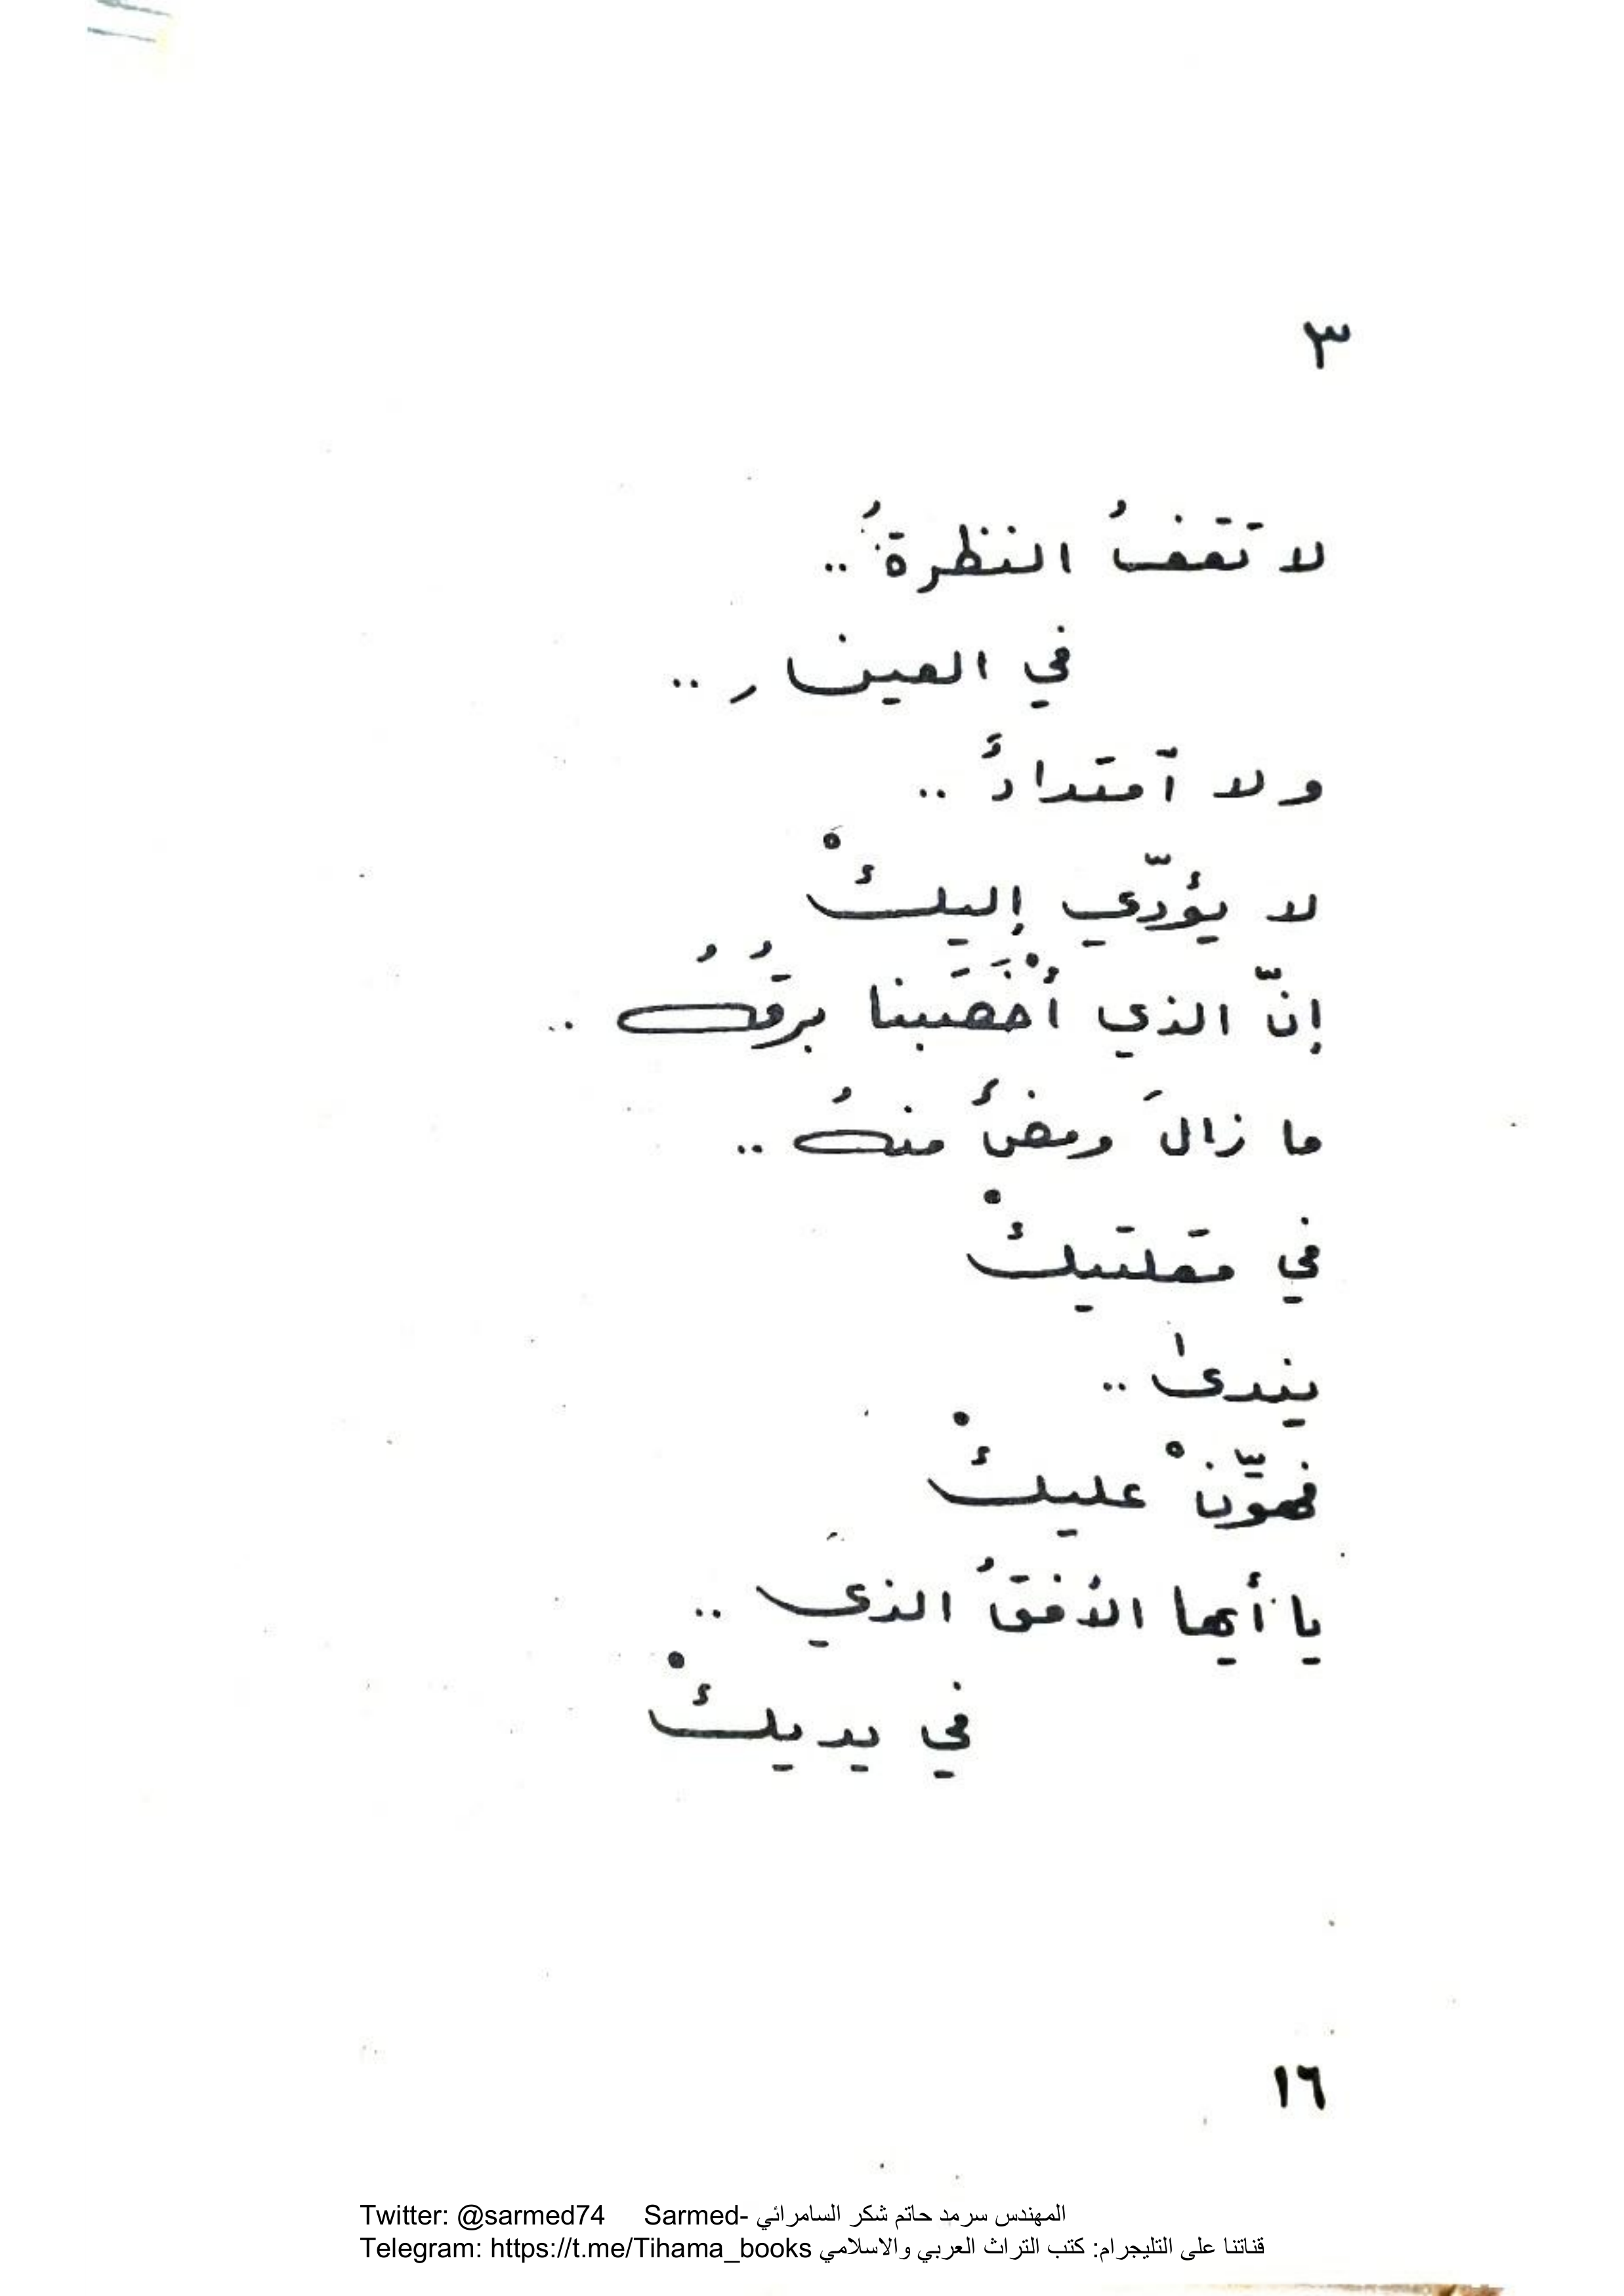 ٣
لا تقفُ النظرةُ ..
في العينِ ..
ولا ٱمتدادٌ ..
لا يؤدّي إليكْ
إنّ الذي أخْصَبَنا برقُهُ ..
ما زالَ ومضٌ منهُ ..
في مقلتيكْ
يندىٰ ..
فهوّنْ عليكْ
يا أيها الأفقُ الذي ..
في يديكْ
١٦
Twitter: @sarmed74 Sarmed- المهندس سرمد حاتم شكر السامرائي
Telegram: https://t.me/Tihama_books قناتنا على التليجرام: كتب التراث العربي والاسلامي